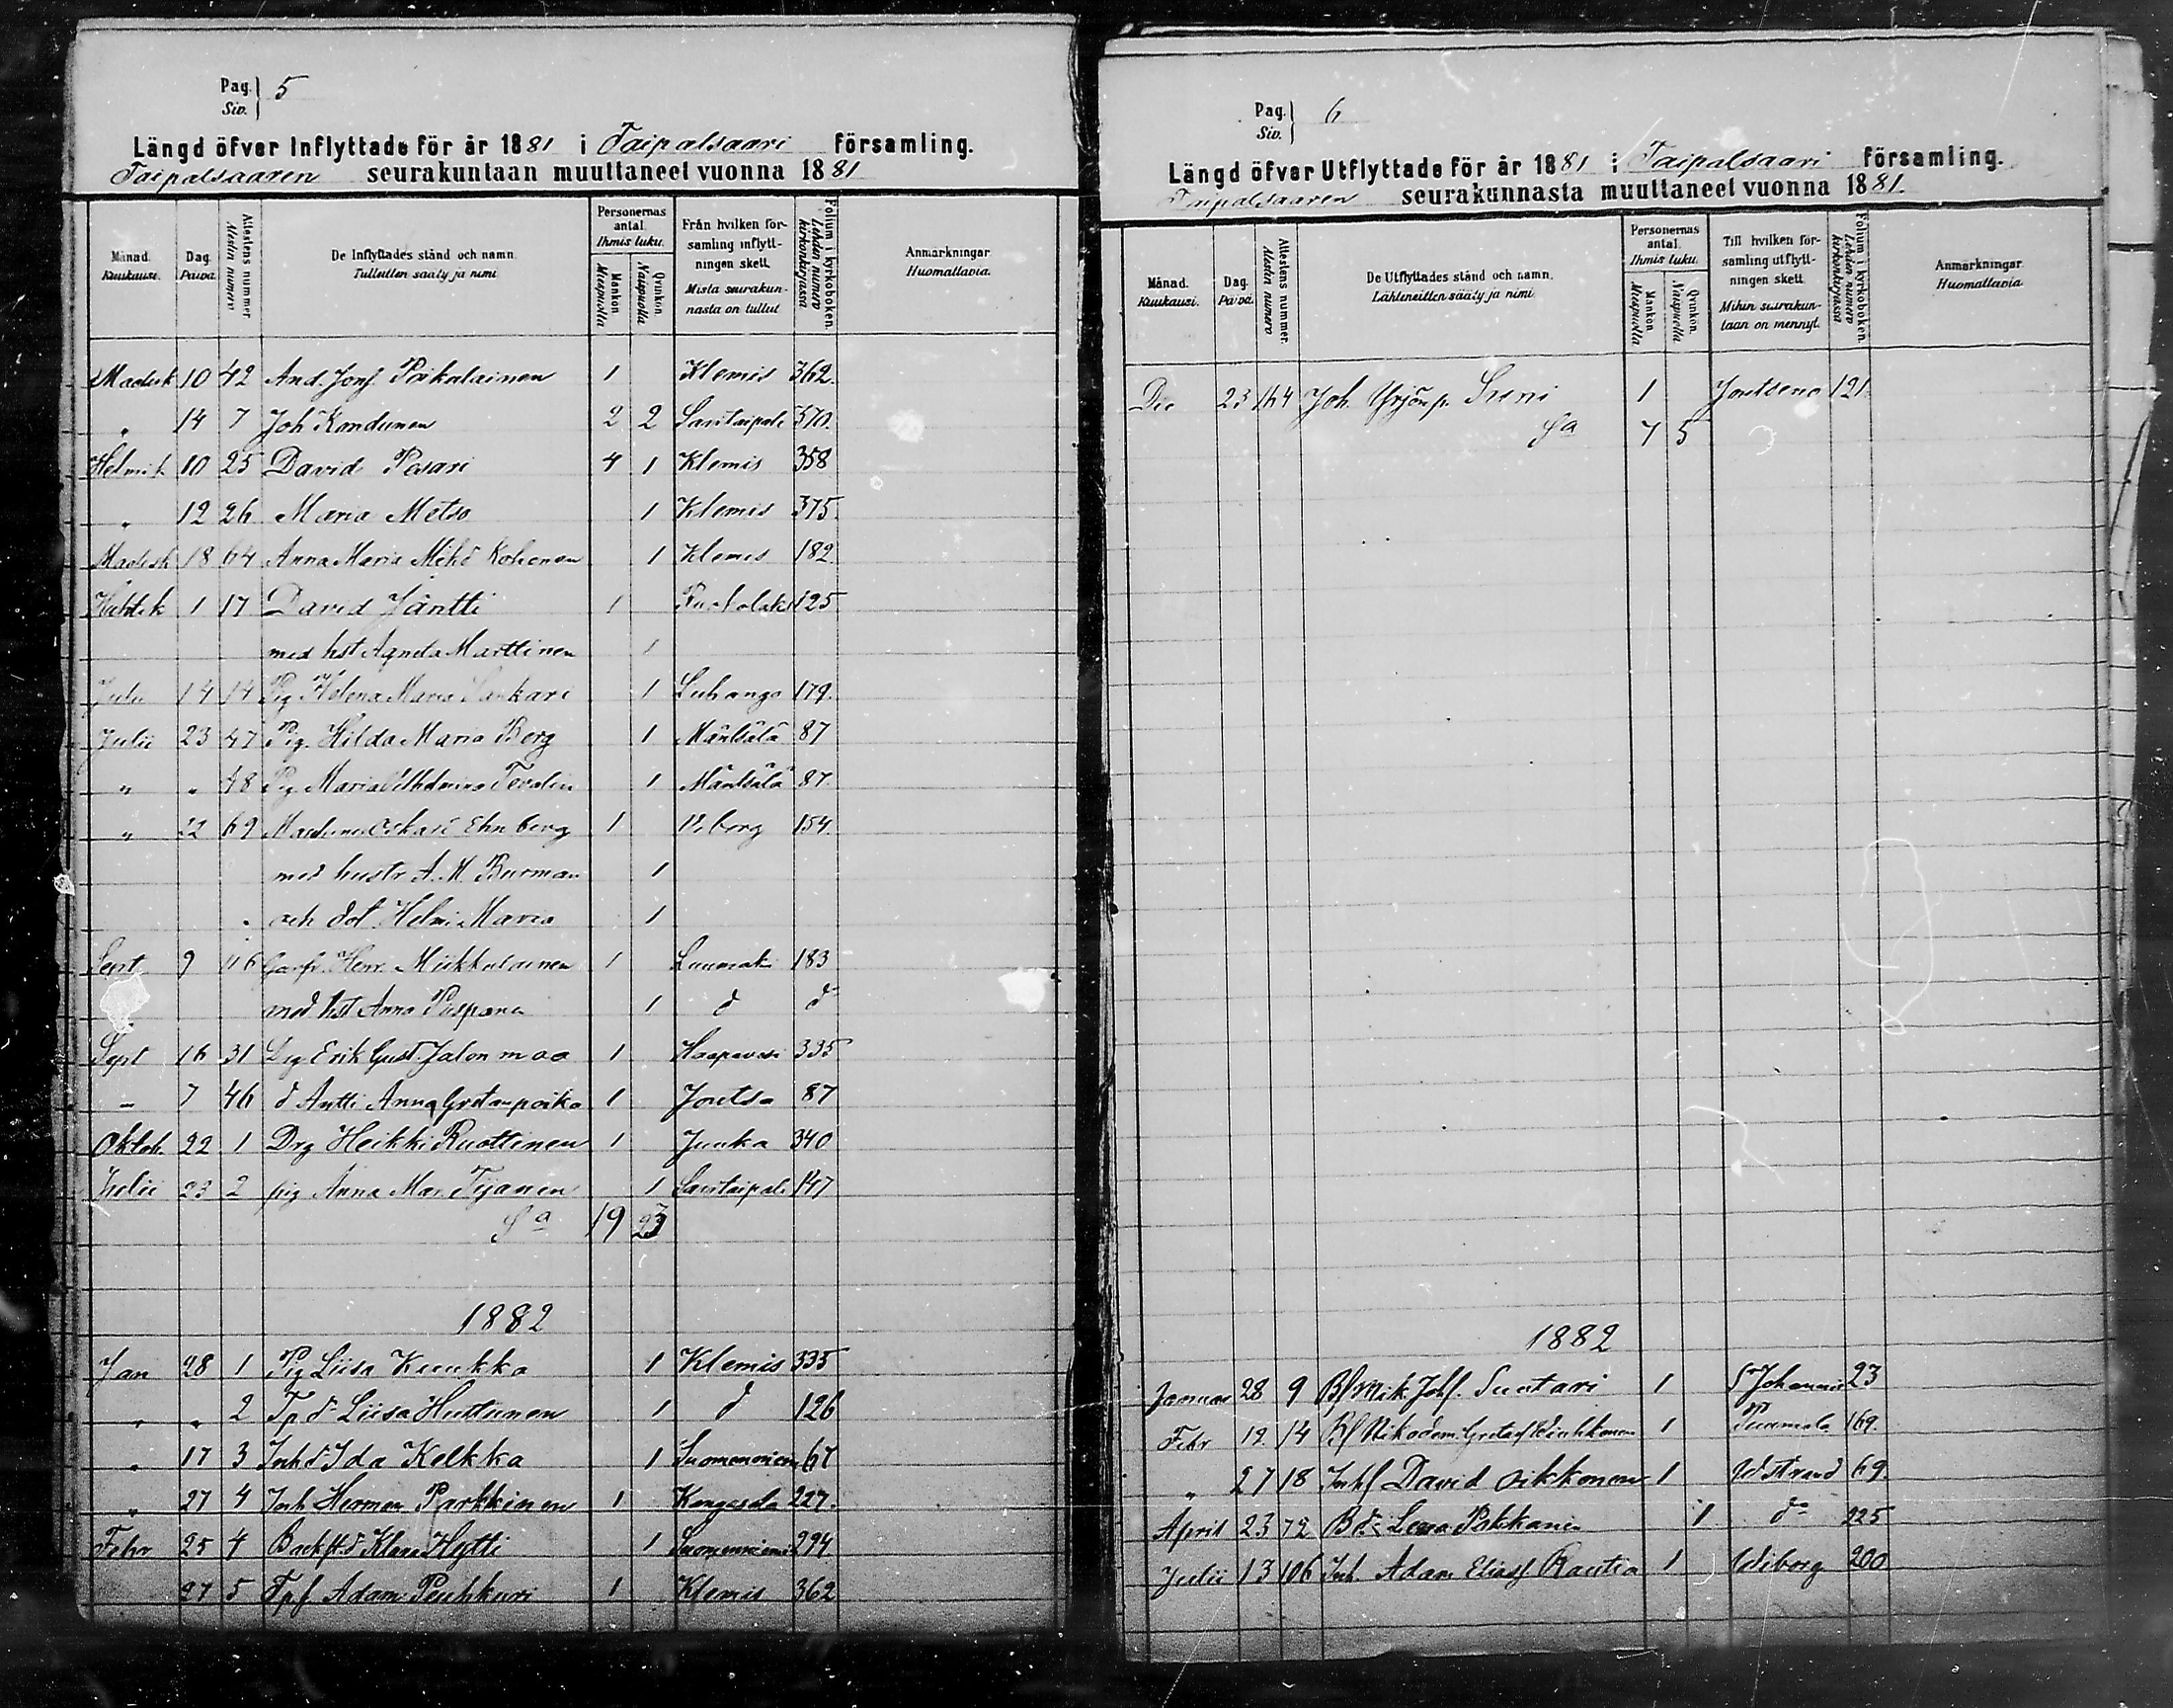 Pag. 5
Siv.
Längd öfver Inflyttade för år 1881 i Taipalsaari församling.
Taipalsaaren seurakuntaan muuttaneet vuonna 1881
Månad. Kuukausi.
Dag. Päivä.
Attestens nummer Alestin numero
De Inflyttades stånd och namn. Tulleitten sääty ja nimi
Personernas antal. Ihmis luku.
Mankön Miespuolia
Qvinkön. Naispuolia
Från hvilken församling inflyttningen skett. Mistä seurakunnasta on tullut
Folium i kyrkoboken. Lehden numero kirkonkirjassa
Anmärkningar Huomattavia.
Maalisk 10 42 And. Jonf. Poikalainen 1 Klemis 362.
" 14 7 Joh 2 2 Savitaipale 370.
Helmik 10 25 David Pesari 4 1 Klemis 358
" 12 26 Maria Metso 1 Klemis 375.
Maalisk 18 64 Anna Maria Mikd Kohonen 1 Klemis 182.
Huhtik 1 17 David Jäntti 1 125
med hst Agneta Marttinen 1
14 14 Pig Helena Maria Sankari 1 Luhanga 179.
Julii 23 47 Pig. Hilda Maria Berg 1 Mäntsälä 87
" " 48 Pig Maria Vilhelmina 1 Mäntsälä 87.
" 22 69 Oskari Ehnberg 1 Viborg 154.
med hustr A. M. Burman 1
och dot. Helmi Maria 1
Sept 9 116 Henr. Mikkolainen 1 Luumäki 183
med hst Anna Piispanen 1 d d
Sept 16 31 Drg Erik Gust. Jalonmaa 1 Haapavesi 335
" 7 46 d Antti Anna Gretanpoika 1 Joutsa 87
Oktob. 22 1 Drg Heikki Ruottinen 1 Juuka 340
Julii 23 2 pig Anna Mar. Tijanen 1 Savitaipale 147
Sa 19 23
1882
Jan 28 1 Pig Liisa Kuukka 1 Klemis 335
" " 2 Tp d. Liisa Huttunen 1 d 126
" 17 3 Inh d Ida Kelkka 1 Suomenniemi 67
" 27 4 Inh Herman Parkkinen 1 Kangasala 227.
Febr 25 4 Backst. d Klara Hytti 1 Suomenniemi 294
27 5 Tpf Adam Peuhkuri 1 Klemis 362
Pag. 6
Siv.
Längd öfver Utflyttade för år 1881 i Taipalsaari församling.
Taipalsaaren seurakunnasta muuttaneet vuonna 1881.
Månad. Kuukausi.
Dag. Päivä.
Attestens nummer. Alestin numero
De Utflyttades stånd och namn. Lähteneitten sääty ja nimi
Personernas antal. Ihmis luku.
Mankön Miespuolia
Qvinkön. Naispuolia
Till hvilken församling utflyttningen skett. Mihin seurakuntaan on mennyt.
Folium i kyrkoboken. Lehden numero kirkonkirjassa
Anmärkningar Huomattavia
Dec 23 164 Joh. Yrjönp. Suni 1 Joutseno 121.
Sa 7 5
1882
Januar 28 9 Bf Mik. Johf. Suntari 1 St Johannis 23
Febr 19. 14 Bf Nikodem. Gretasf 1 Puumala 169.
" 27 18 Inhf David Oikkonen 1 Wstrand 69.
April 23 72 B d. Leena Pekkanen 1 do 225
Julii 13 106 Inh. Adam Eliasf Rautia 1 Wiborg 200